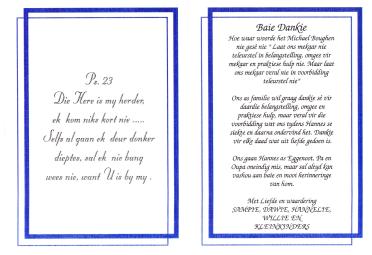 Ps. 23
Die Here is my herder,
ek kom niks kort nie .....
Selfs al gaan ek deur donker
dieptes, sal ek nie bang
wees nie, want U is by my .
Baie Dankie
Hoe waar woorde het Michael Boughen
nie gesê nie " Laat ons mekaar nie
teleurstel in belangstelling, omgee vir
mekaar en praktiese hulp nie. Maar laat
ons mekaar veral nie in voorbidding
teleurstel nie"
Ons as familie wil graag dankie sê vir
daardie belangstelling, omgee en
praktiese hulp, maar veral vir die
voorbidding wat ons tydens Hannes se
siekte en daarna ondervind het. Dankie
vir elke daad wat uit liefde gedoen is.
Ons gaan Hannes as Eggenoot, Pa en
Oupa oneindig mis, maar sal altyd kan
vashou aan baie en mooi herinneringe
van hom.
Met Liefde en waardering
SAMPIE, DAWIE, HANNELIE,
WILLIE EN
KLEINKINDERS